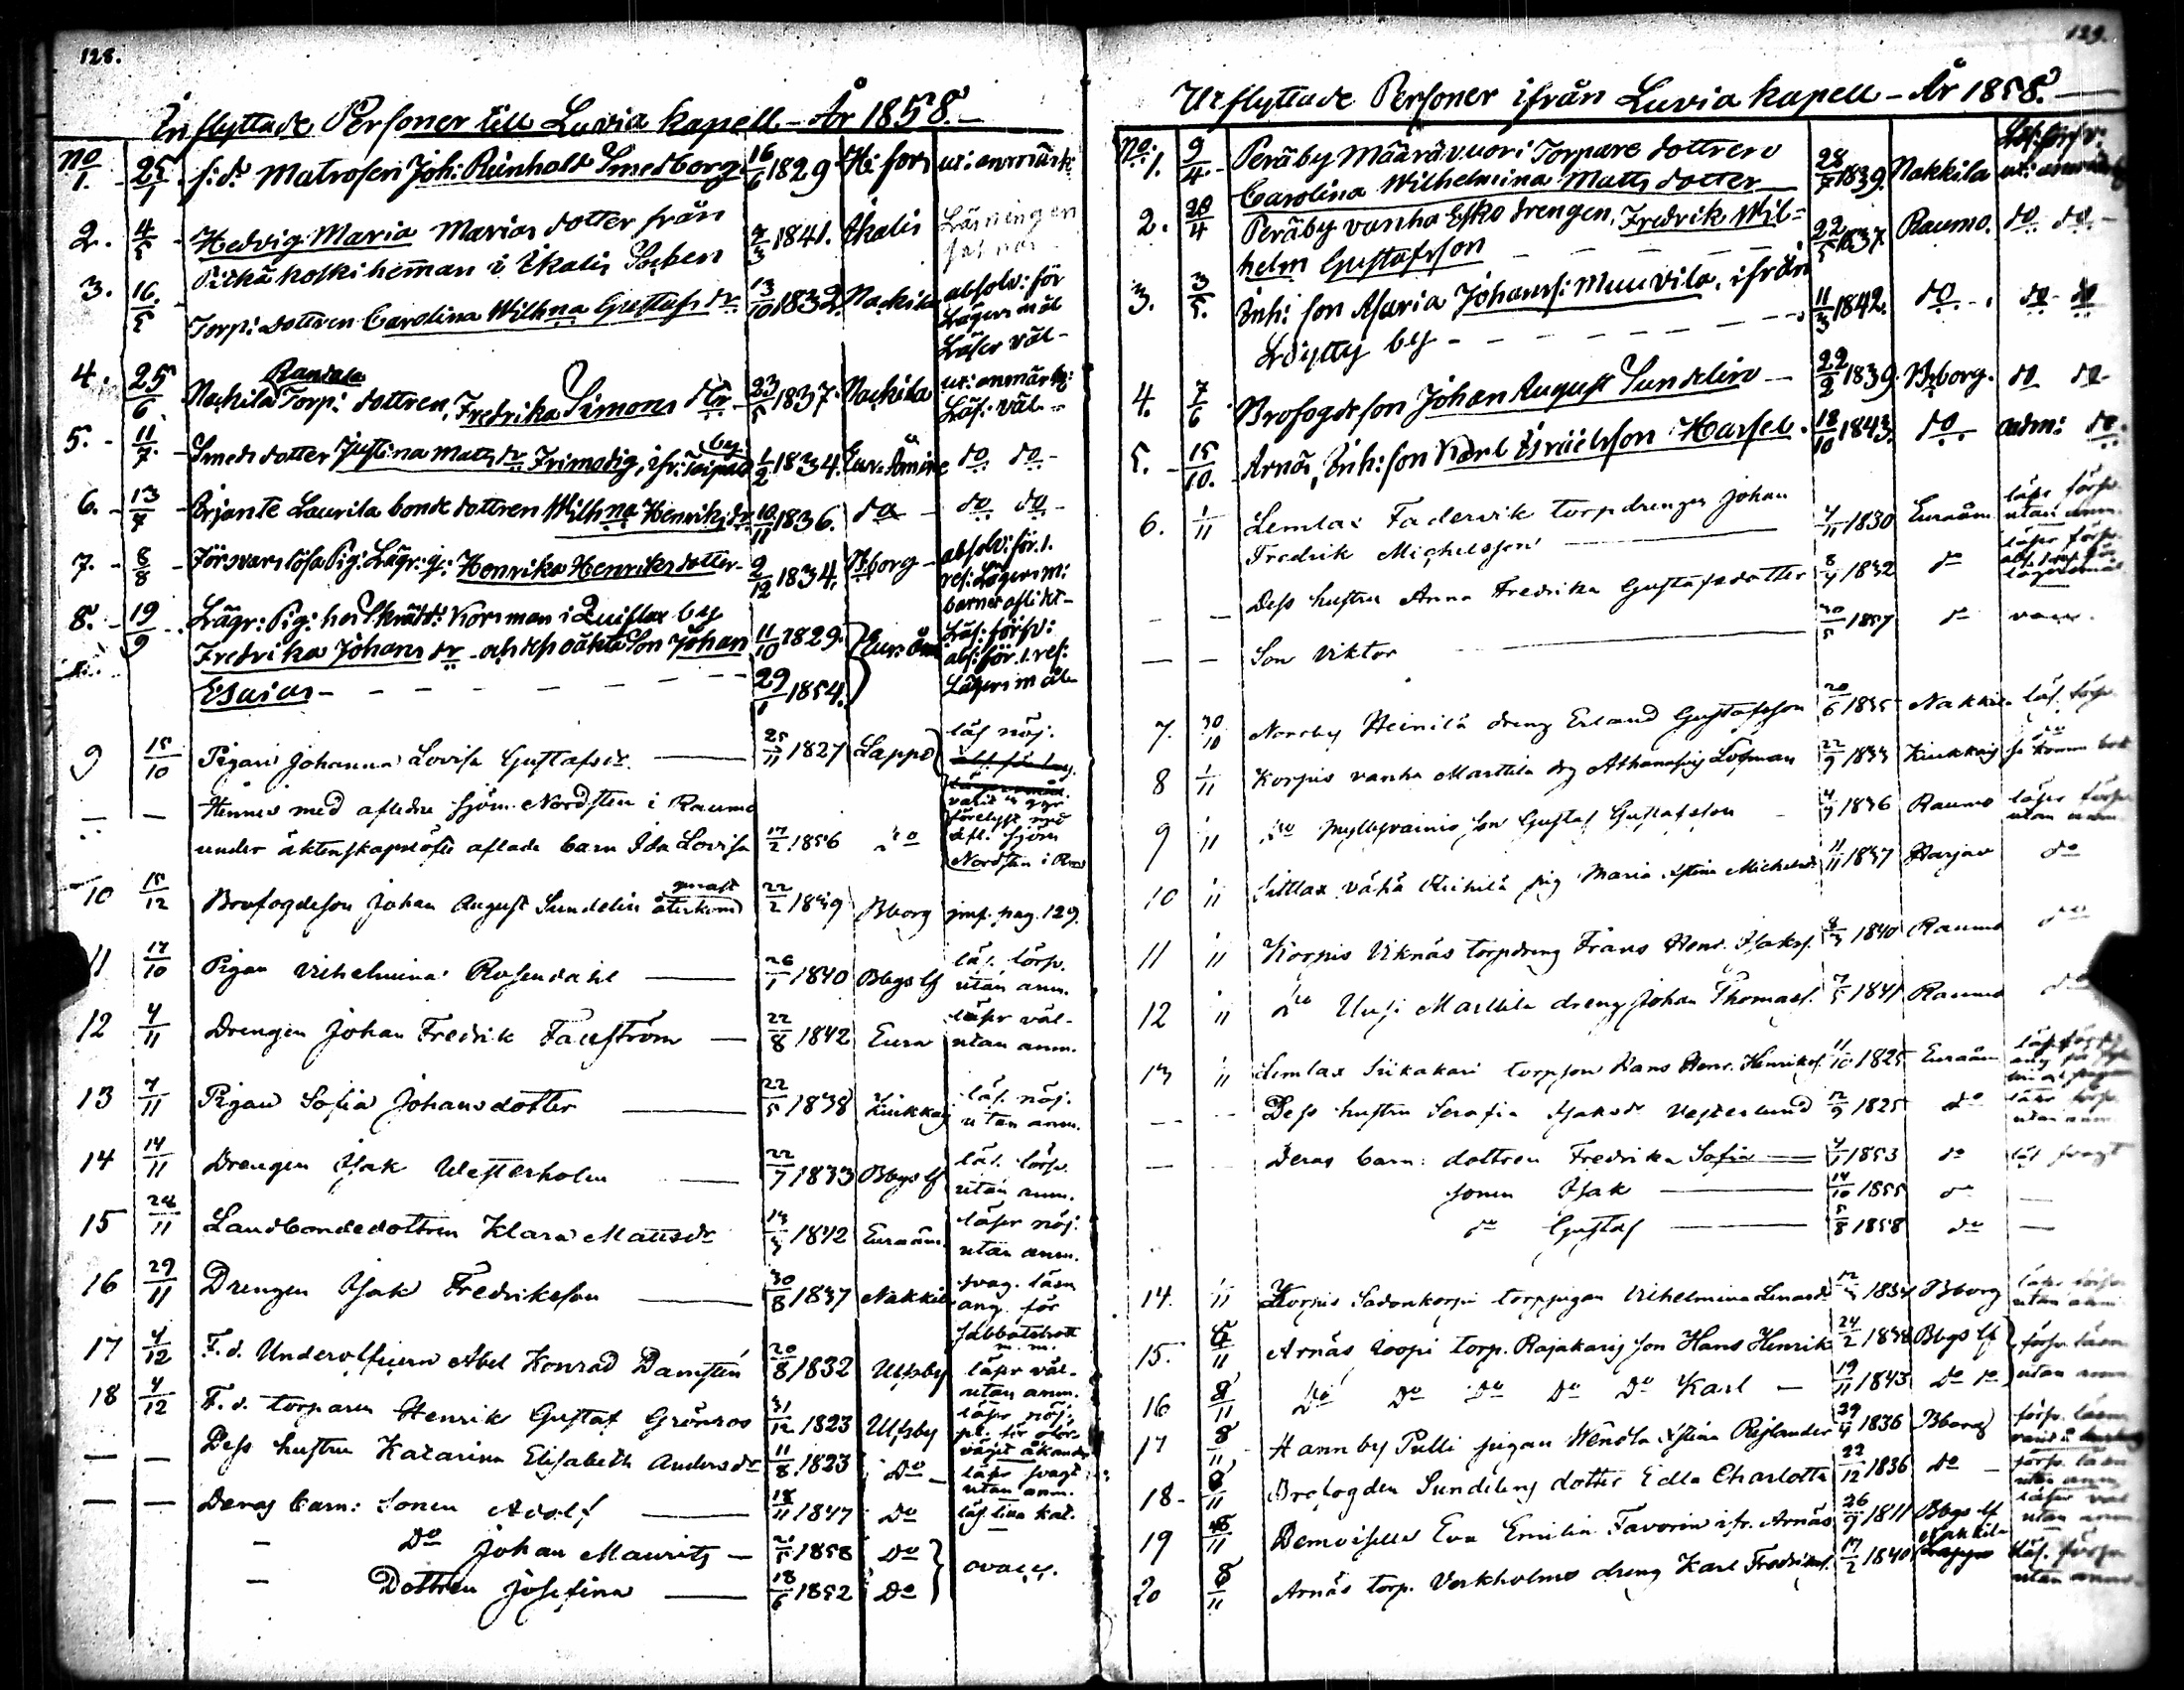 128.
Inflyttade Personer till Luvia kapell - År 1858.
No 1. 25/1 f: d: Matrosen Joh: Reinhold Smedborg 16/6 1829 H: fors ut: anmärk:
2. 4/5 Hedvig Maria Marias dotter från 2/3 1841. Ikalis Läsningen
Pitkäkoski heman i Ikalis Socken
3. 16/5 Torp: dottren Carolina Wilhna Gustafs dr 13/10 1832. Nackila absolv: för
Lägersmål
Läser väl -
4. 25/6 Nackila Randala Torp: dottren, Fredrika Simons dtr 23/5 1837. Nackila ut: anmärk:
Läs: väl -
5. 11/7 Smeds dotter Justina Matts dr Frimodig, ifr: by 1/2 1834. Eur: Åmine do do -
6. 13/7 Irjante Laurila bonde dottren Wilhna Henriks dr 10/11 1836. do do do -
7. 8/8 Försvarslösa Pig: Lägr: q: Henrika Henriks dotter 9/12 1834. Bborg absolv: för. 1.
res: Lägersm:
barnet aflidt -
8. 19/9 Lägr: Pig: hos Skrädd: Korsman i Luislax by
Fredrika Johans dr och dess oäkta Son Johan 11/10 1829. Eur: Åm Läs: försv:
abs: för 1. res:
Esaias - 29/1 1854. Lägersmål
9 15/10 Pigan Johanna Lovisa Gustafsdr. 25/11 1827 Lappo läs nöj.
Hennes med aflidne Sjöm. Nordsten i Raumo
under äktenskapslöfte aflade barn Ida Lovisa 17/2 1856 do förelyst med
afl. sjöm
Nordsten i Rmo
10 15/12 Brofogdeson Johan August Sundelin återkom 22/2 1839 Bborg jmf. pag. 129.
11 17/10 Pigan Vilhelmina Rosendahl 26/1 1840 Bbgs lf läs. försv.
utan anm.
12 4/11 Drengen Johan Fredrik Fauström 22/8 1842 Eura läser väl -
utan anm.
13 7/11 Pigan Sofia Johansdotter 22/5 1838 Kiukkais läs. nöj.
utan anm.
14 14/11 Drengen Isak Westerholm 22/7 1833 Bbgs lf läs. försv.
utan anm.
15 28/11 Landbondedottren Klara Mattsdr 14/7 1842 Euraåm. läser nöj.
utan anm.
16 29/11 Drengen Isak Fredriksson 30/8 1837 Nakkila svag. läsn
ang. för
Sabbatsbrott
m. m.
17 4/12 F. d. Underofficern Abel Konrad Damstén 20/8 1832 Ulfsby läser väl -
utan anm.
18 4/12 F. d. torparen Henrik Gustaf Grönroos 31/12 1823 Ulfsby läser nöj,
— — Dess hustru Katarina Elisabeth Andersdr 11/8 1823 Do - läser svagt
utan anm.
— — Deras barn: Sonen Adolf 18/11 1847 Do läs. lilla kat.
- Do Johan Mauritz - 21/5 1858 Do
ovacc.
- Dottren Josefina 18/6 1852 Do
129.
Utflyttade Personer ifrån Luvia kapell - År 1858.
No: 1. 9/4 Peräby Määrävuori Torpare dottren 28/7 1839. Nakkila Läs: försv:
ut: anmärk
Carolina Wilhelmina Matts dotter
2. 20/4 Peräby vanha Esko drengen, Fredrik Wil= 22/5 1837 Raumo. do do -
helm Gustafsson
3. 3/5. Inh: son Asaria Johanss: Muuvila, ifrån 11/3 1842. do - do do
Löytty by -
4. 7/6 Brofogdeson Johan August Sundelin - 22/2 1839. Bborg. do do
5. 15/10. Arnäs, Inh: son Karl Israelsson Hassel. 18/10 1843. do. adm: do.
6. 1/11 Lemlax Fadervik torpdrengen Johan 1830 Euraåm läser försv.
utan anm.
Fredrik Michelsson
— — Dess hustru Anna Fredrika Gustafsdotter 1832 do
— — Son Viktor 1857 do vacc.
7. 30/10 Norrby Heinilä dreng Erland Gustafsson 20/6 1835 Nakkila läs. försv
8 1/11 Korpis vanha Marttila dg Athanasius Löfman 22/9 1833 Kiukkais
9 " do Myllyvainio son Gustaf Gustafsson 1836 Raumo läser försv
utan anm
10 " Sittlax vähä Heikilä pig Maria Stina Michelsdr 11/11 1837 Harjav do
11 " Korpis Viknäs torpdreng Frans Henr. Isakss. 1840 Raumo do
12 " do Uusi Marttila dreng Johan Thomass. 7/5 1841 Raumo do
13 " Lemlax Siikakari torpson Hans Henr. Henrikss. 11/10 1825 Euraåm
— - Dess hustru Serafia Isaksdr Vesterlund 12/9 1825 do läser försv.
utan anm.
— - Deras barn: dottren Fredrika Sofia 1853 do läs svagt
sonen Isak 14/10 1855 do —
do Gustaf 5/8 1858 do —
14. " Korpis Sadonkorpi torppigan Vilhelmina Lenardsdr 1834 Bborg läser försv
utan anm
15. 6/11 Arnäs Loopi torp. Rajakarij son Hans Henrik 24/2 1838 Bbgs lf försv. läsn
16 8/11 Do Do Do Do Do Karl - 19/11 1843 Do do utan anm
17 8/11 Hannby Pulli pigan Wendla Stina Rejlander 29/4 1836 Bborg försv. läsn
18 - 8/11 Brofogden Sundelins dotter Edla Charlotta 22/12 1836 do - försv. läsn
utan anm
19 18/11 Demoiselle Eva Emilia Favorin ifr. Arnäs 26/9 1811 Bbgs lf läser väl
utan anm
20 8/11 Arnäs torp. Verkholms dreng Karl Fredrikss. 17/2 1840 Nakkila Lappo läs. försv
utan anm.